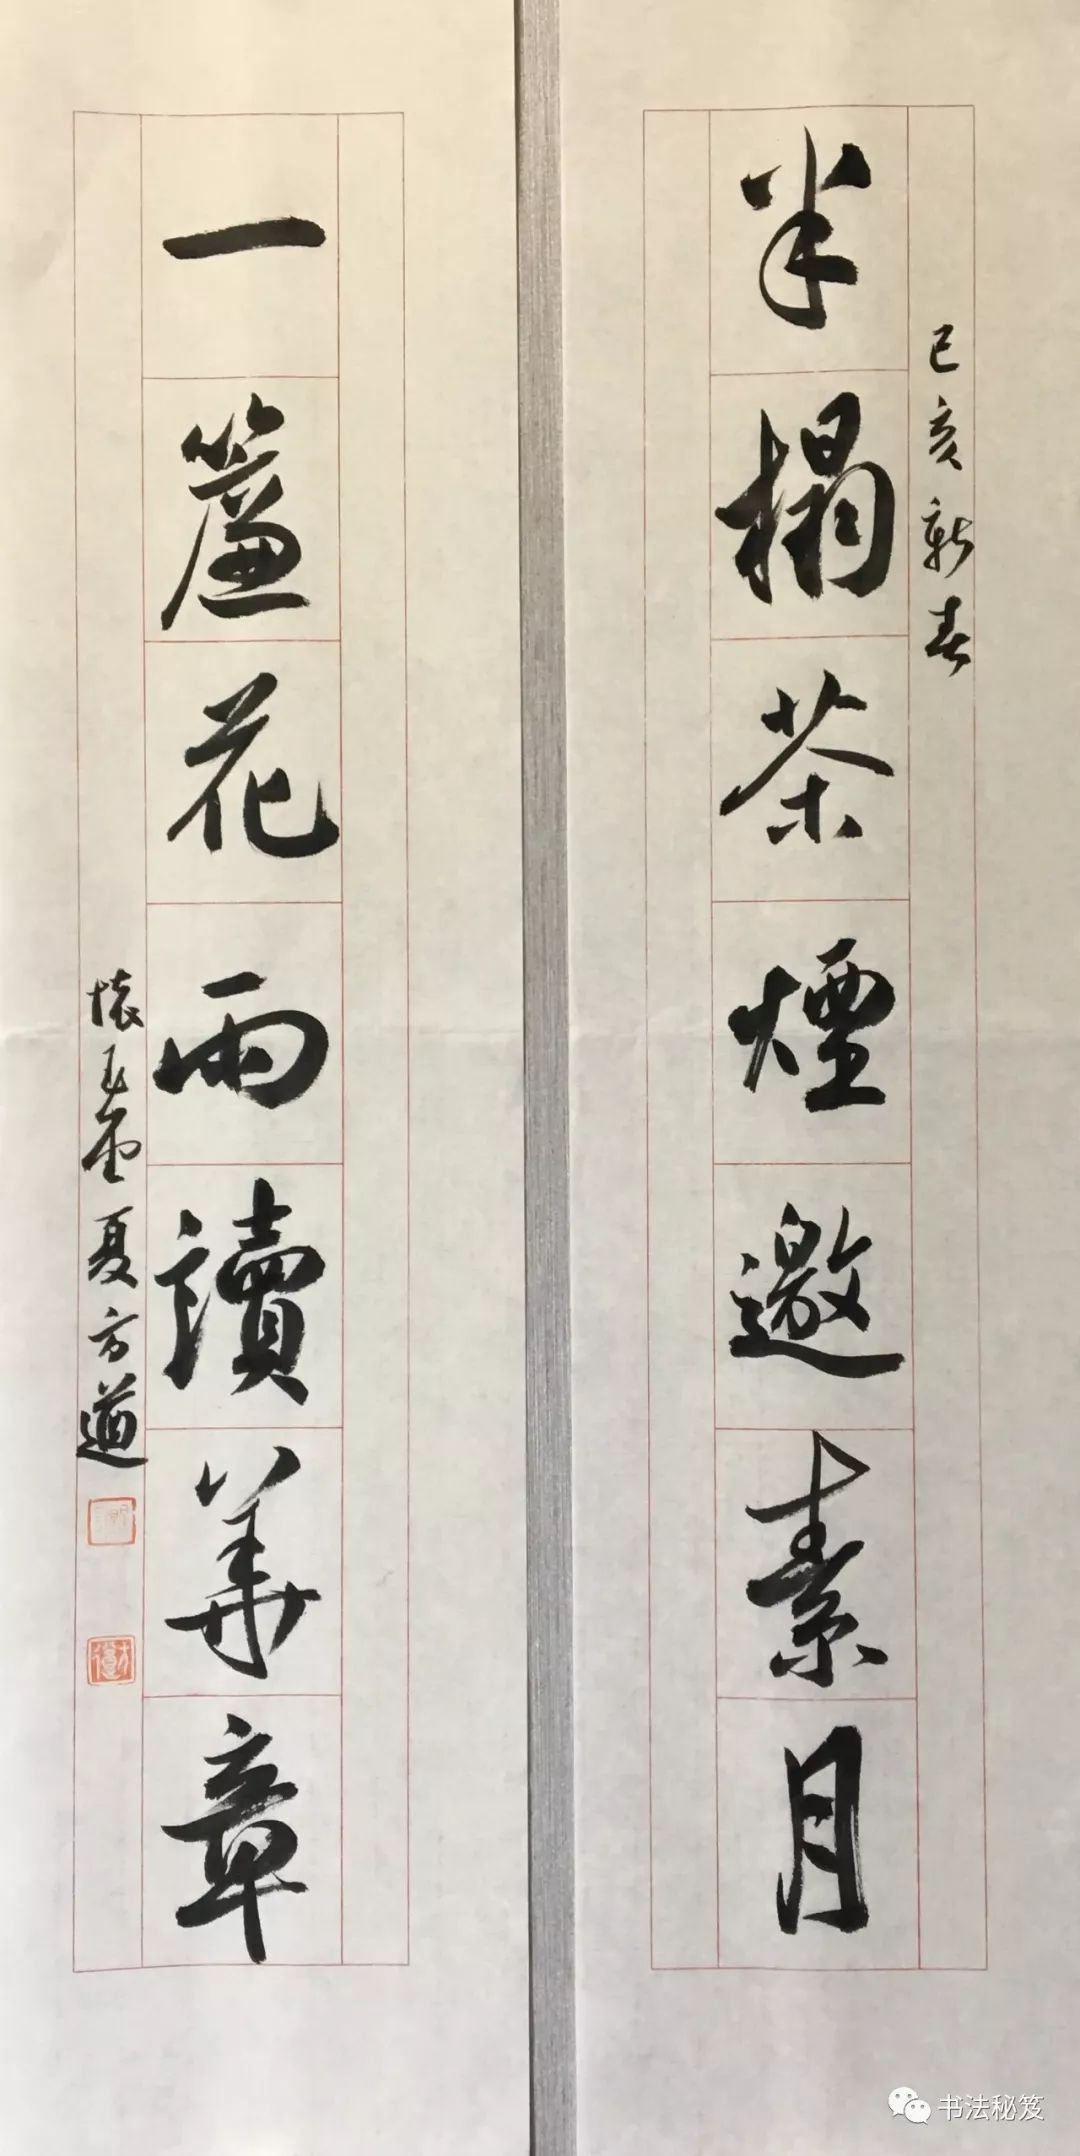 己亥新春
半榻茶煙邀素月
一簾花雨讀華章
夏方道
书法秘笈